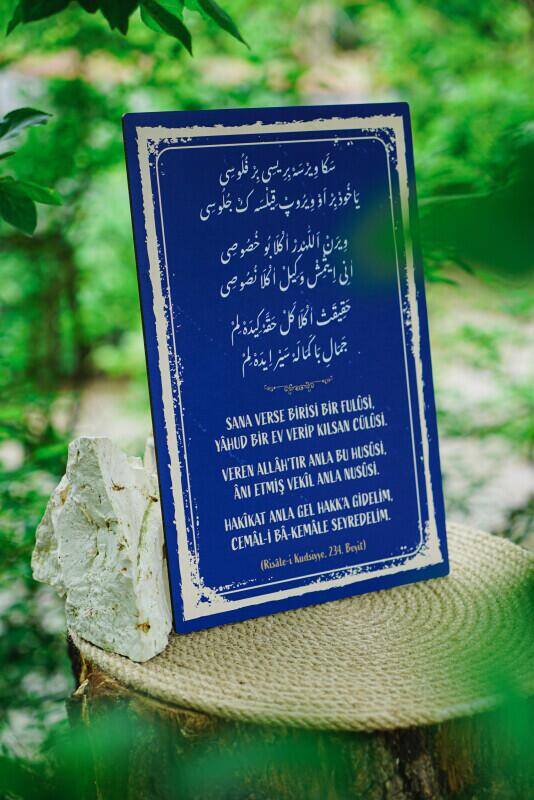 سَكَا وِيرْسَه بِرِيسِى بِرْ فُلُوسِى
يَاخُوذْ بِرْ اَوْ وِيرُوپْ قِيلْسَه ڭ جُلُوسِى
وِيرَنْ اَللّٰهْدِرْ اَڭْلَا بُو خُصُوصِى
اَنِى اِيتْمِشْ وَكِيلْ اَڭْلَا نُصُوصِى
حَقِيقَتْ اَڭْلَا كَلْ حَقَّه كِيدَه لِمْ
جَمَالِ بَا كَمَالَه سَيْرْ اِيدَه لِمْ
SANA VERSE BİRİSİ BİR FULÛSİ,
YÂHUD BİR EV VERİP KILSAN CÜLÛSİ.
VEREN ALLÂH'TIR ANLA BU HUSÛSİ,
ÂNI ETMİŞ VEKÎL ANLA NUSÛSİ.
HAKÎKAT ANLA GEL HAKK'A GİDELİM,
CEMÂL-İ BÂ-KEMÂLE SEYREDELİM.
(Risâle-i Kudsiyye, 234. Beyit)